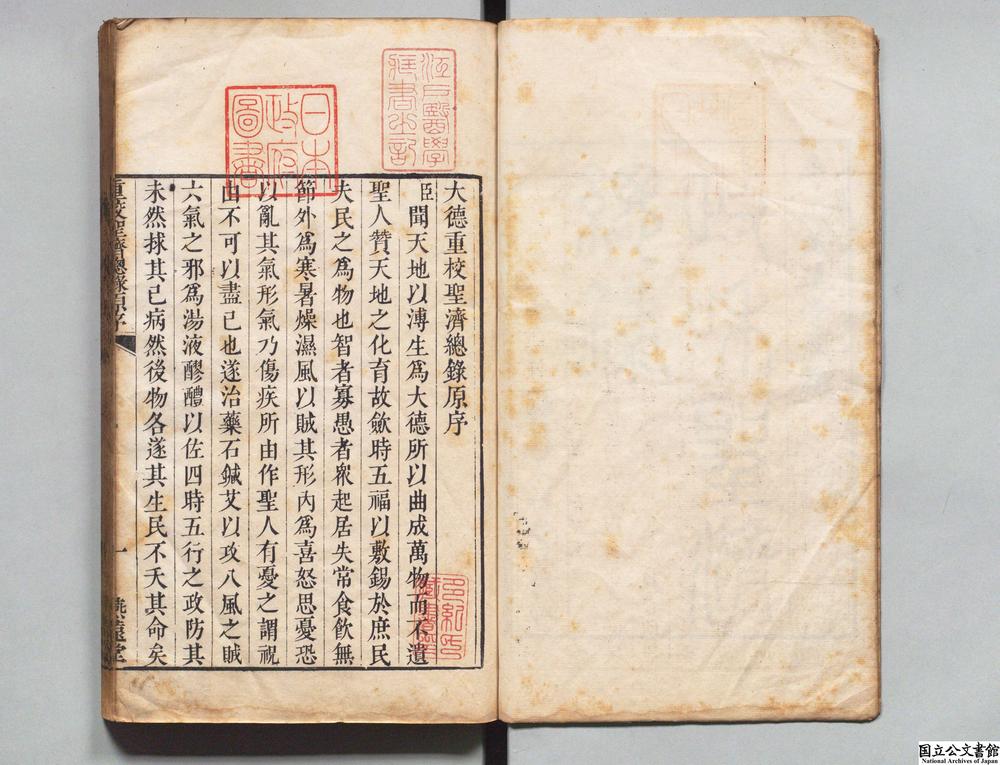 大德重校聖濟總錄原序
臣聞天地以溥生爲大德所以曲成萬物而不遺
聖人贊天地之化育故歛時五福以敷錫於庶民
夫民之爲物也智者寡愚者衆起居失常食飲無
節外爲寒暑燥濕風以賊其形內爲喜怒思憂恐
以亂其氣形氣乃傷疾所由作聖人有憂之謂祝
由不可以盡已也遂治藥石鍼艾以攻八風之賊
六氣之邪爲湯液醪醴以佐四時五行之政防其
未然捄其已病然後物各遂其生民不夭其命矣
重校聖濟總錄原序
一
日本政府圖書
江戶醫學藏書之記
国立公文書館
National Archives of Japan